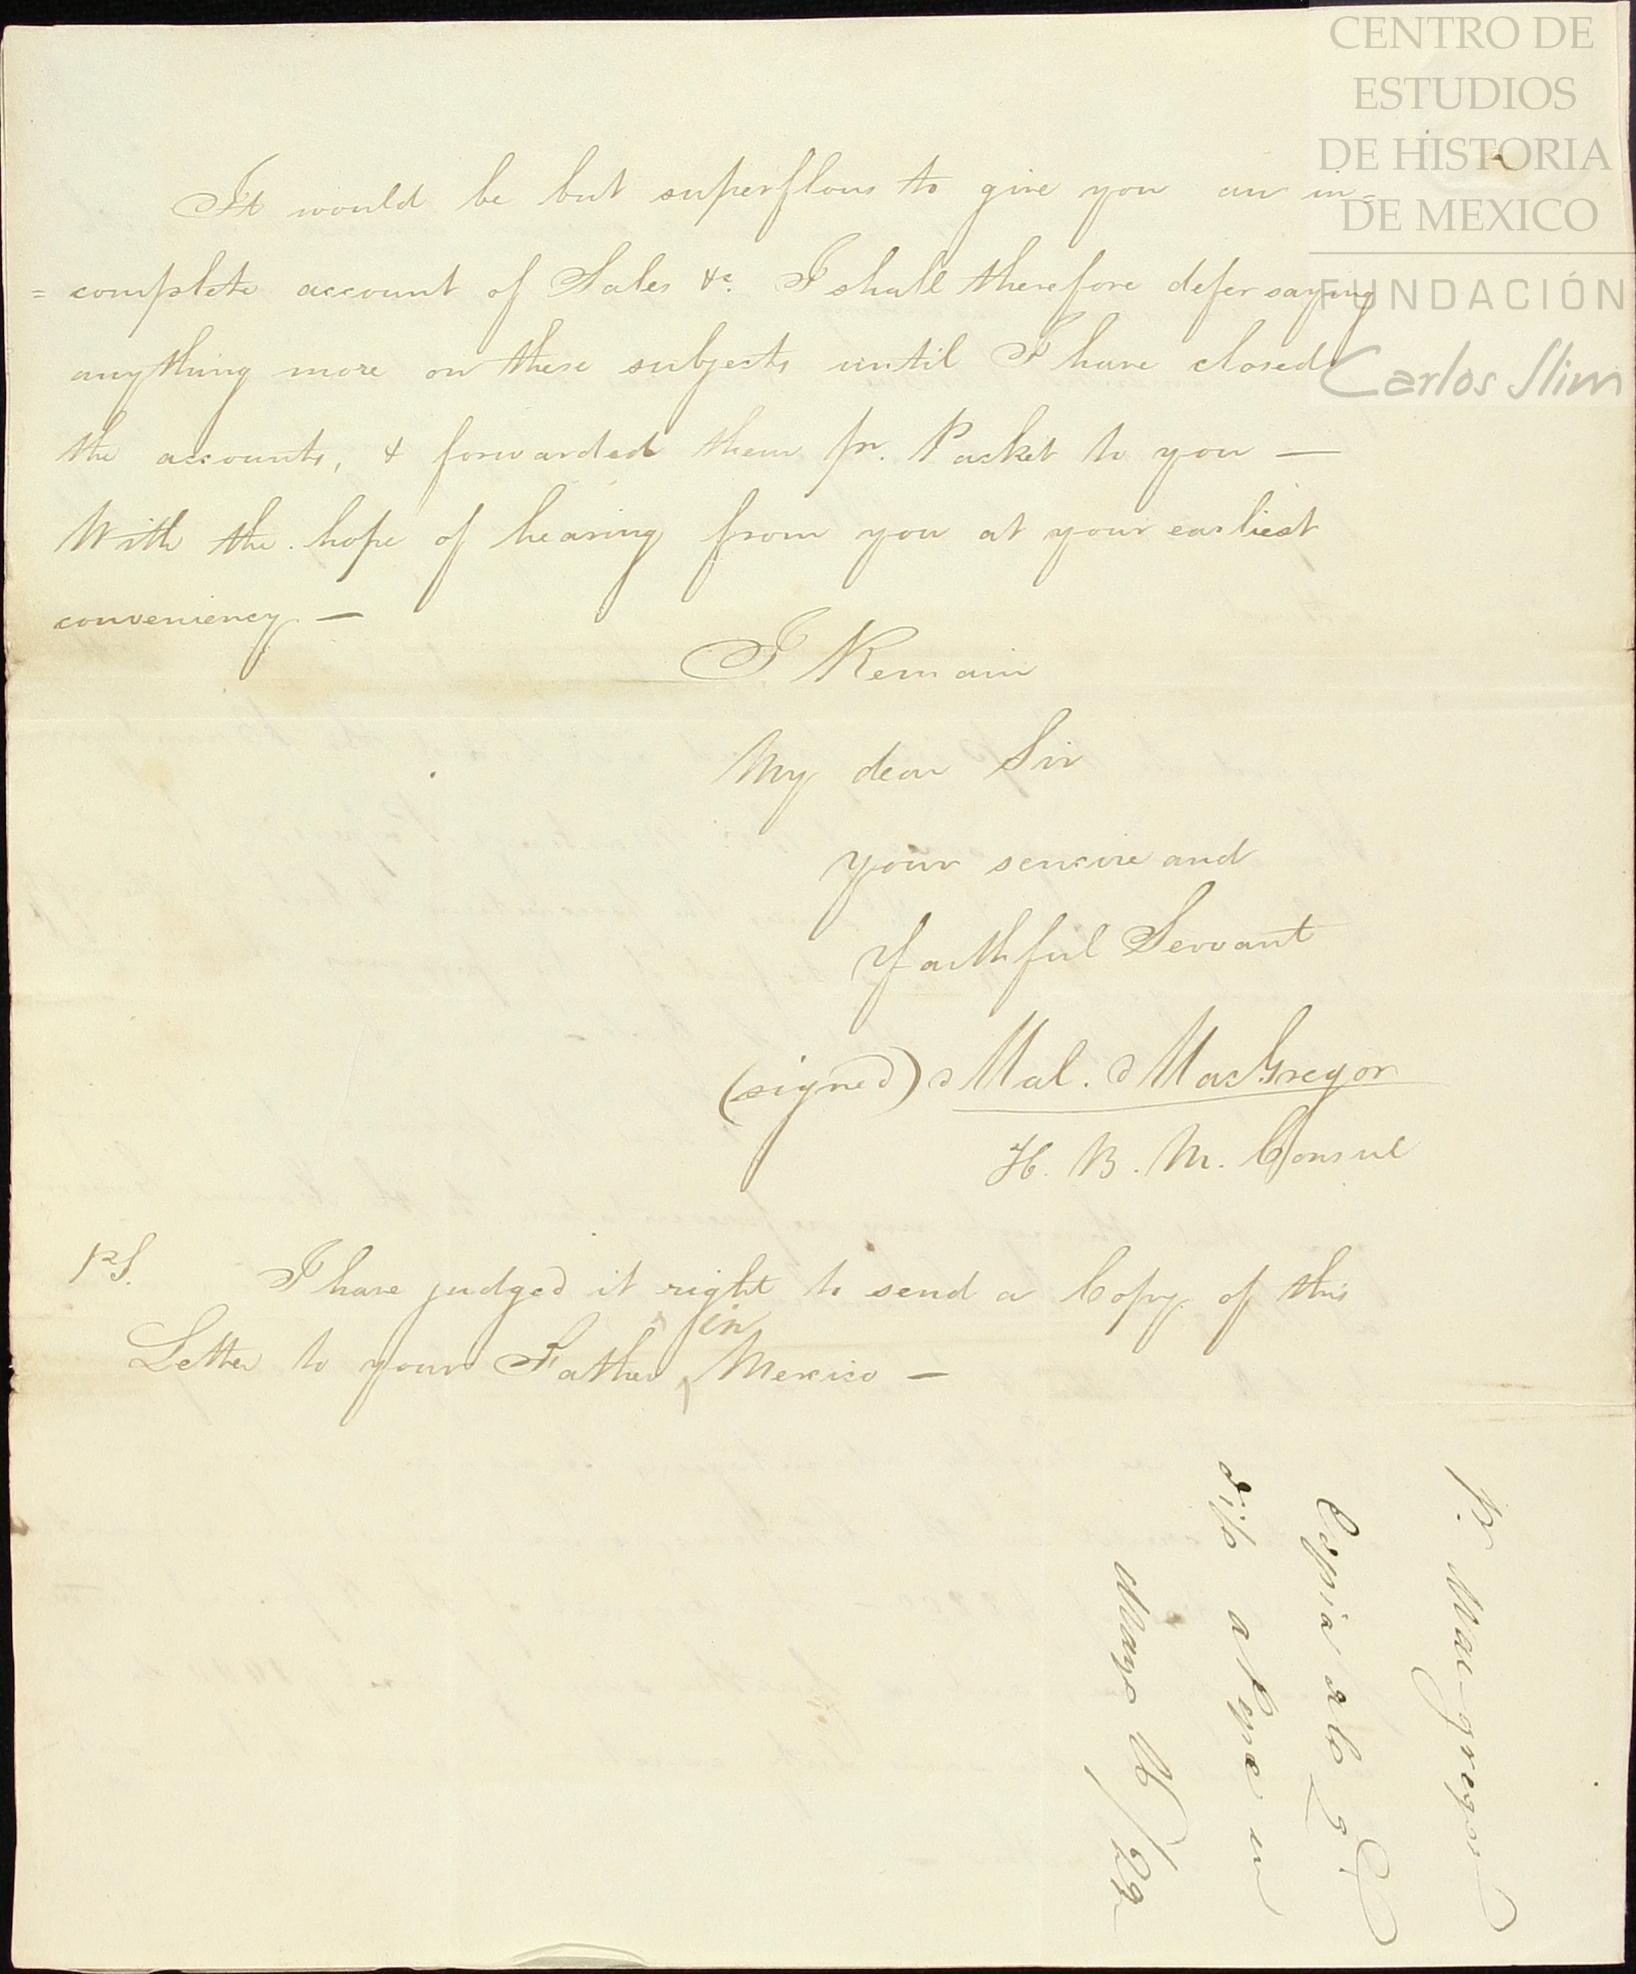 CENTRO DE
ESTUDIOS
DE HISTORIA
DE MEXICO
FUNDACIÓN
Carlos Slim
It would be but superflous to give you an in=
=complete account of Sales &c. I shall therefore defer saying
anything more on these subjects until I have closed
the accounts, & forwarded them pr. Packet to you —
With the hope of hearing from you at your earliest
conveniency —
I Remain
My dear Sir
Your sencire and
Faithful Servant
(signed) Mal. MacGregor
H. B. M. Consul
PS. I have judged it right to send a Copy of this
in
Letter to your Father Mexico —
Mac-gregor
Copia de lo q
dijo a
Mayo 16/29